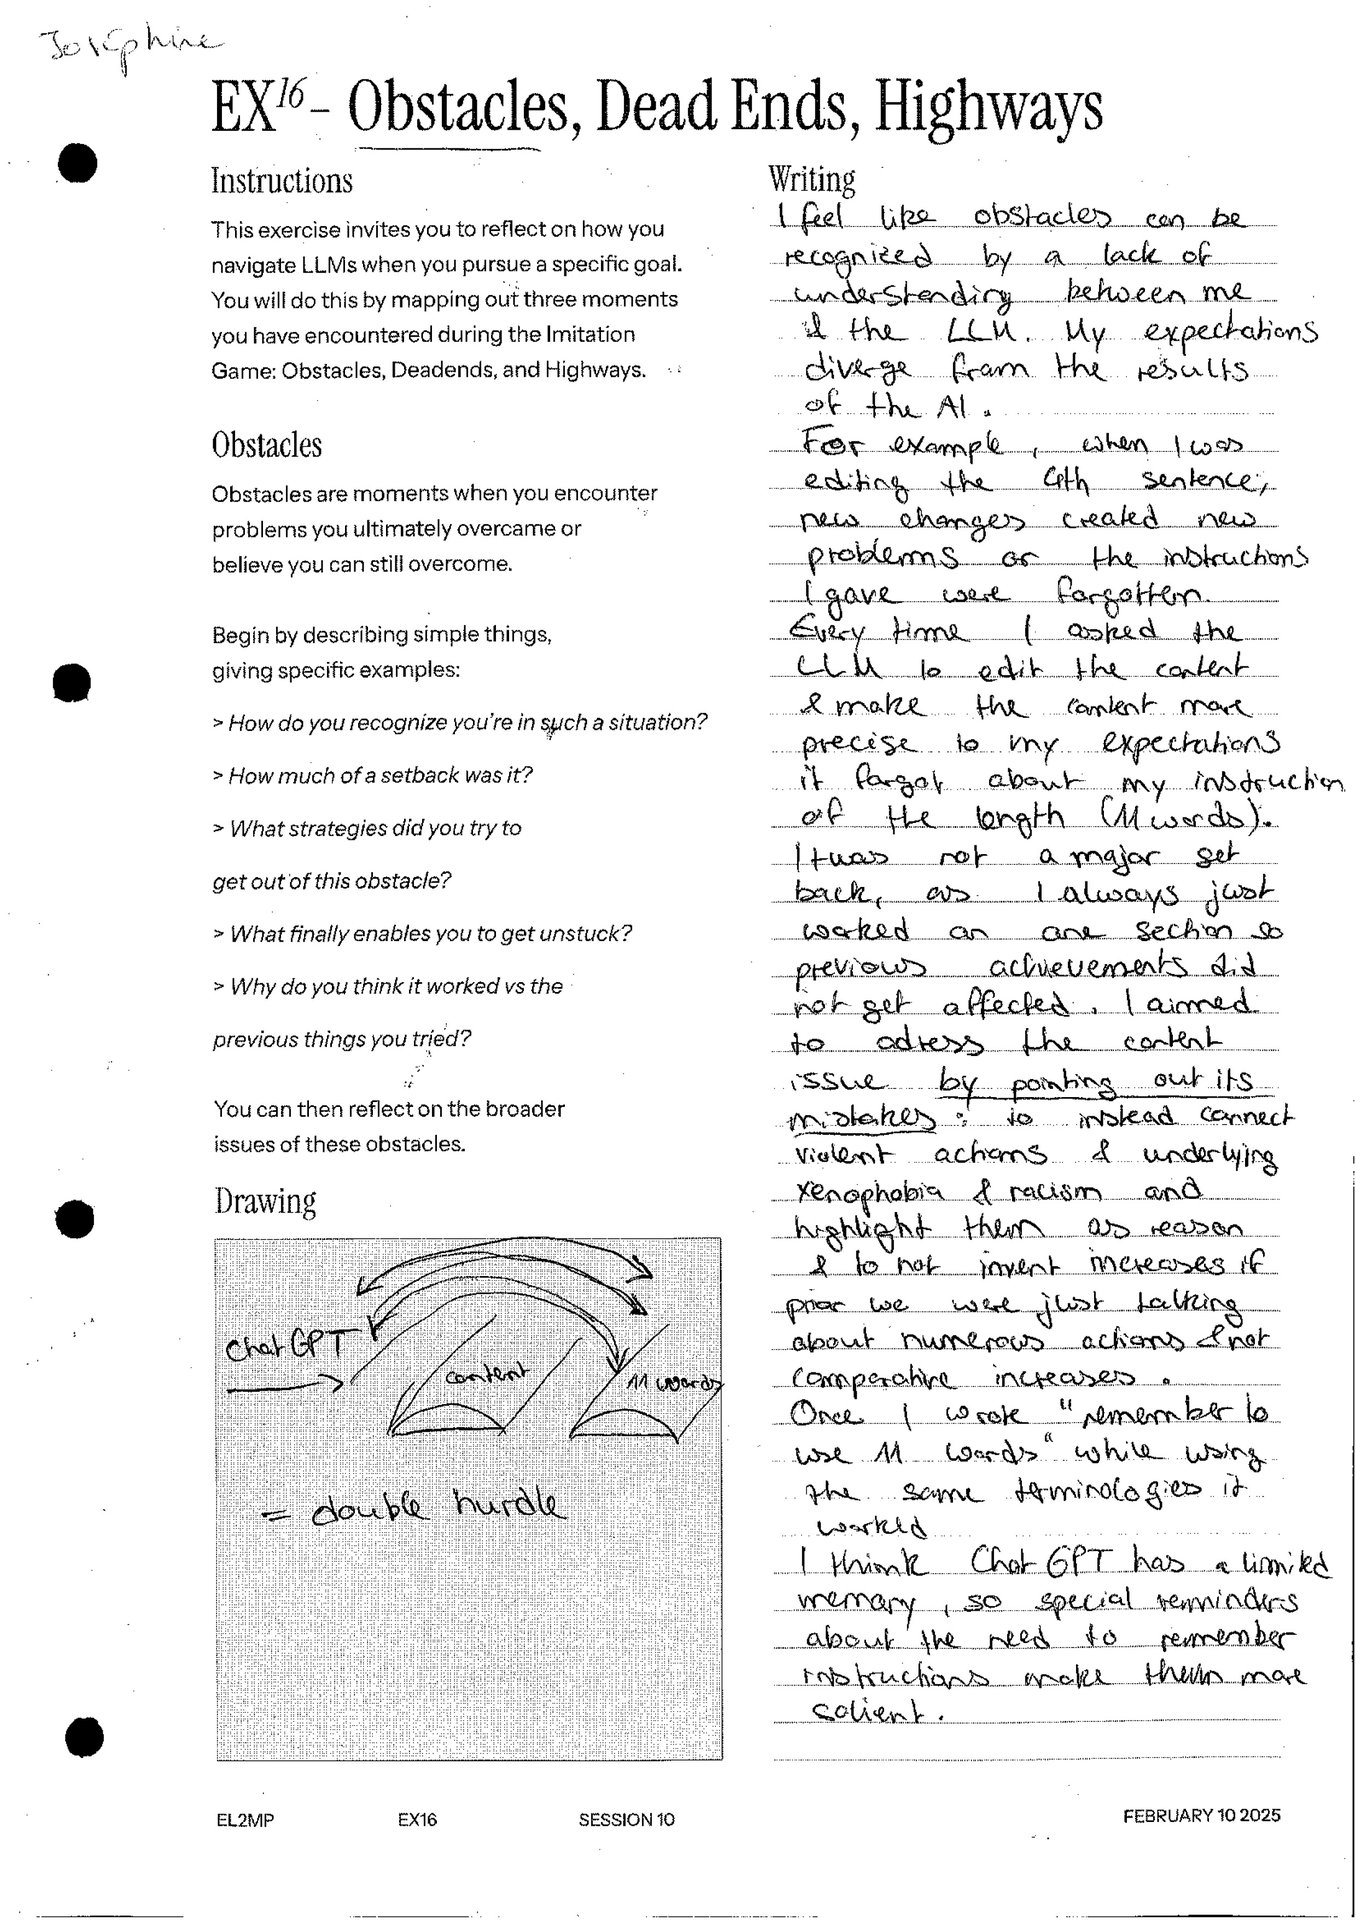 Joséphine
EX16 - Obstacles, Dead Ends, Highways
Instructions
This exercise invites you to reflect on how you
navigate LLMs when you pursue a specific goal.
You will do this by mapping out three moments
you have encountered during the Imitation
Game: Obstacles, Deadends, and Highways.
Obstacles
Obstacles are moments when you encounter
problems you ultimately overcame or
believe you can still overcome.
Begin by describing simple things,
giving specific examples:
> How do you recognize you're in such a situation?
> How much of a setback was it?
> What strategies did you try to
get out of this obstacle?
> What finally enables you to get unstuck?
> Why do you think it worked vs the
previous things you tried?
You can then reflect on the broader
issues of these obstacles.
Drawing
ChatGPT
content
11 words
= double hurdle
Writing
I feel like obstacles can be
recognized by a lack of
understanding between me
& the LLM. My expectations
diverge from the results
of the AI.
For example, when I was
editing the 4th sentence,
new changes created new
problems or the instructions
I gave were forgotten.
Every time I asked the
LLM to edit the content
& make the content more
precise to my expectations
it forgot about my instruction
of the length (11 words).
It was not a major set
back, as I always just
worked on one section so
previous achievements did
not get affected. I aimed
to adress the content
issue by pointing out its
mistakes: to instead connect
violent actions & underlying
xenophobia & racism and
highlight them as reason
& to not invent increases if
prior we were just talking
about numerous actions & not
comperative increases.
Once I wrote "remember to
use 11 words" while using
the same terminologies it
worked
I think Chat GPT has a limited
memory, so special reminders
about the need to remember
instructions make them more
salient.
EL2MP
EX16
SESSION 10
FEBRUARY 10 2025